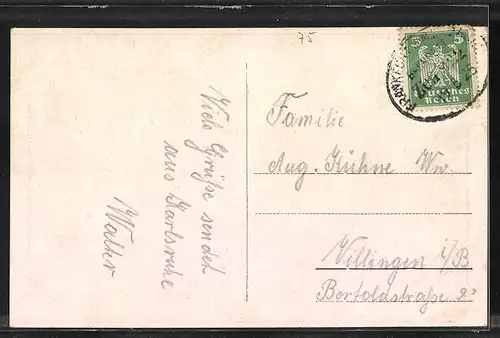 75
5 5
Deutsches
Reich
Viele Grüße sendet
aus Karlsruhe
Walter
Familie
Aug. Kühne Ww.
Villingen i/B
Bertoldstraße